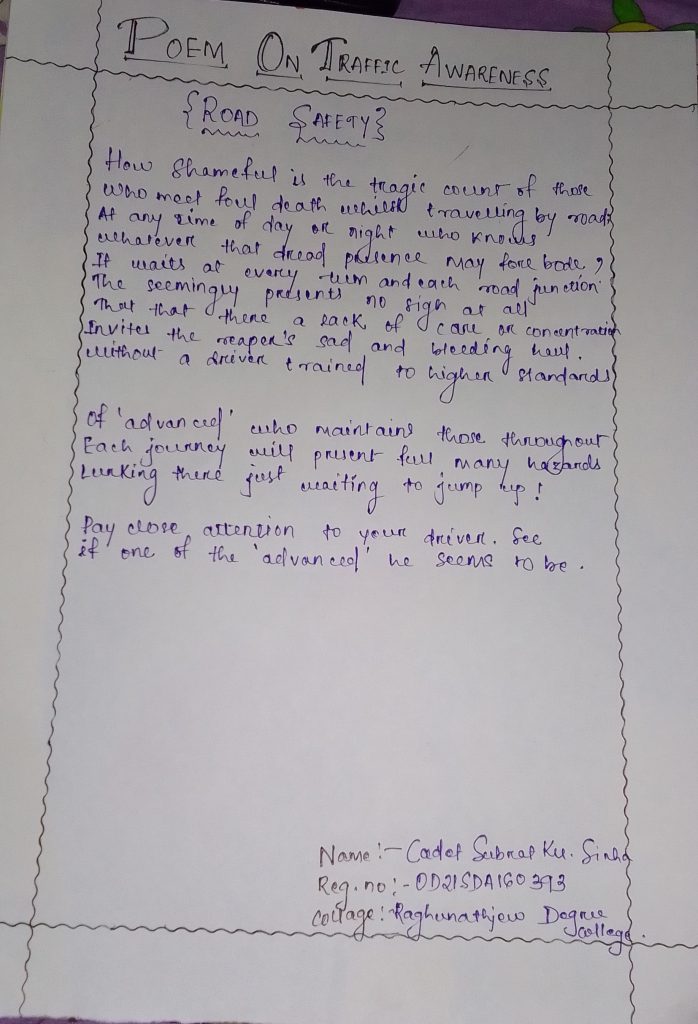 POEM ON TRAFFIC AWARENESS
{ROAD SAFETY}
How Shameful is the tragic count of those
who meet foul death whilst travelling by road?
At any time of day or night who knows
whatever that dread presence may fore bode,
It waits at every turn and each road junction
The seemingly presents no sign at all
That that there a lack of care or concentration
Invites the reaper's sad and bleeding haul.
without a driver trained to higher standards
of 'advanced' who maintains those throughout
Each journey will present full many hazards
Lurking there just waiting to jump up!
Pay close attention to your driver. See
if one of the 'advanced' he seems to be.
Name:- Cadet Subrat Ku. Singh
Reg. no:- OD21SDA160393
collage:- Raghunathjew Degree
college.